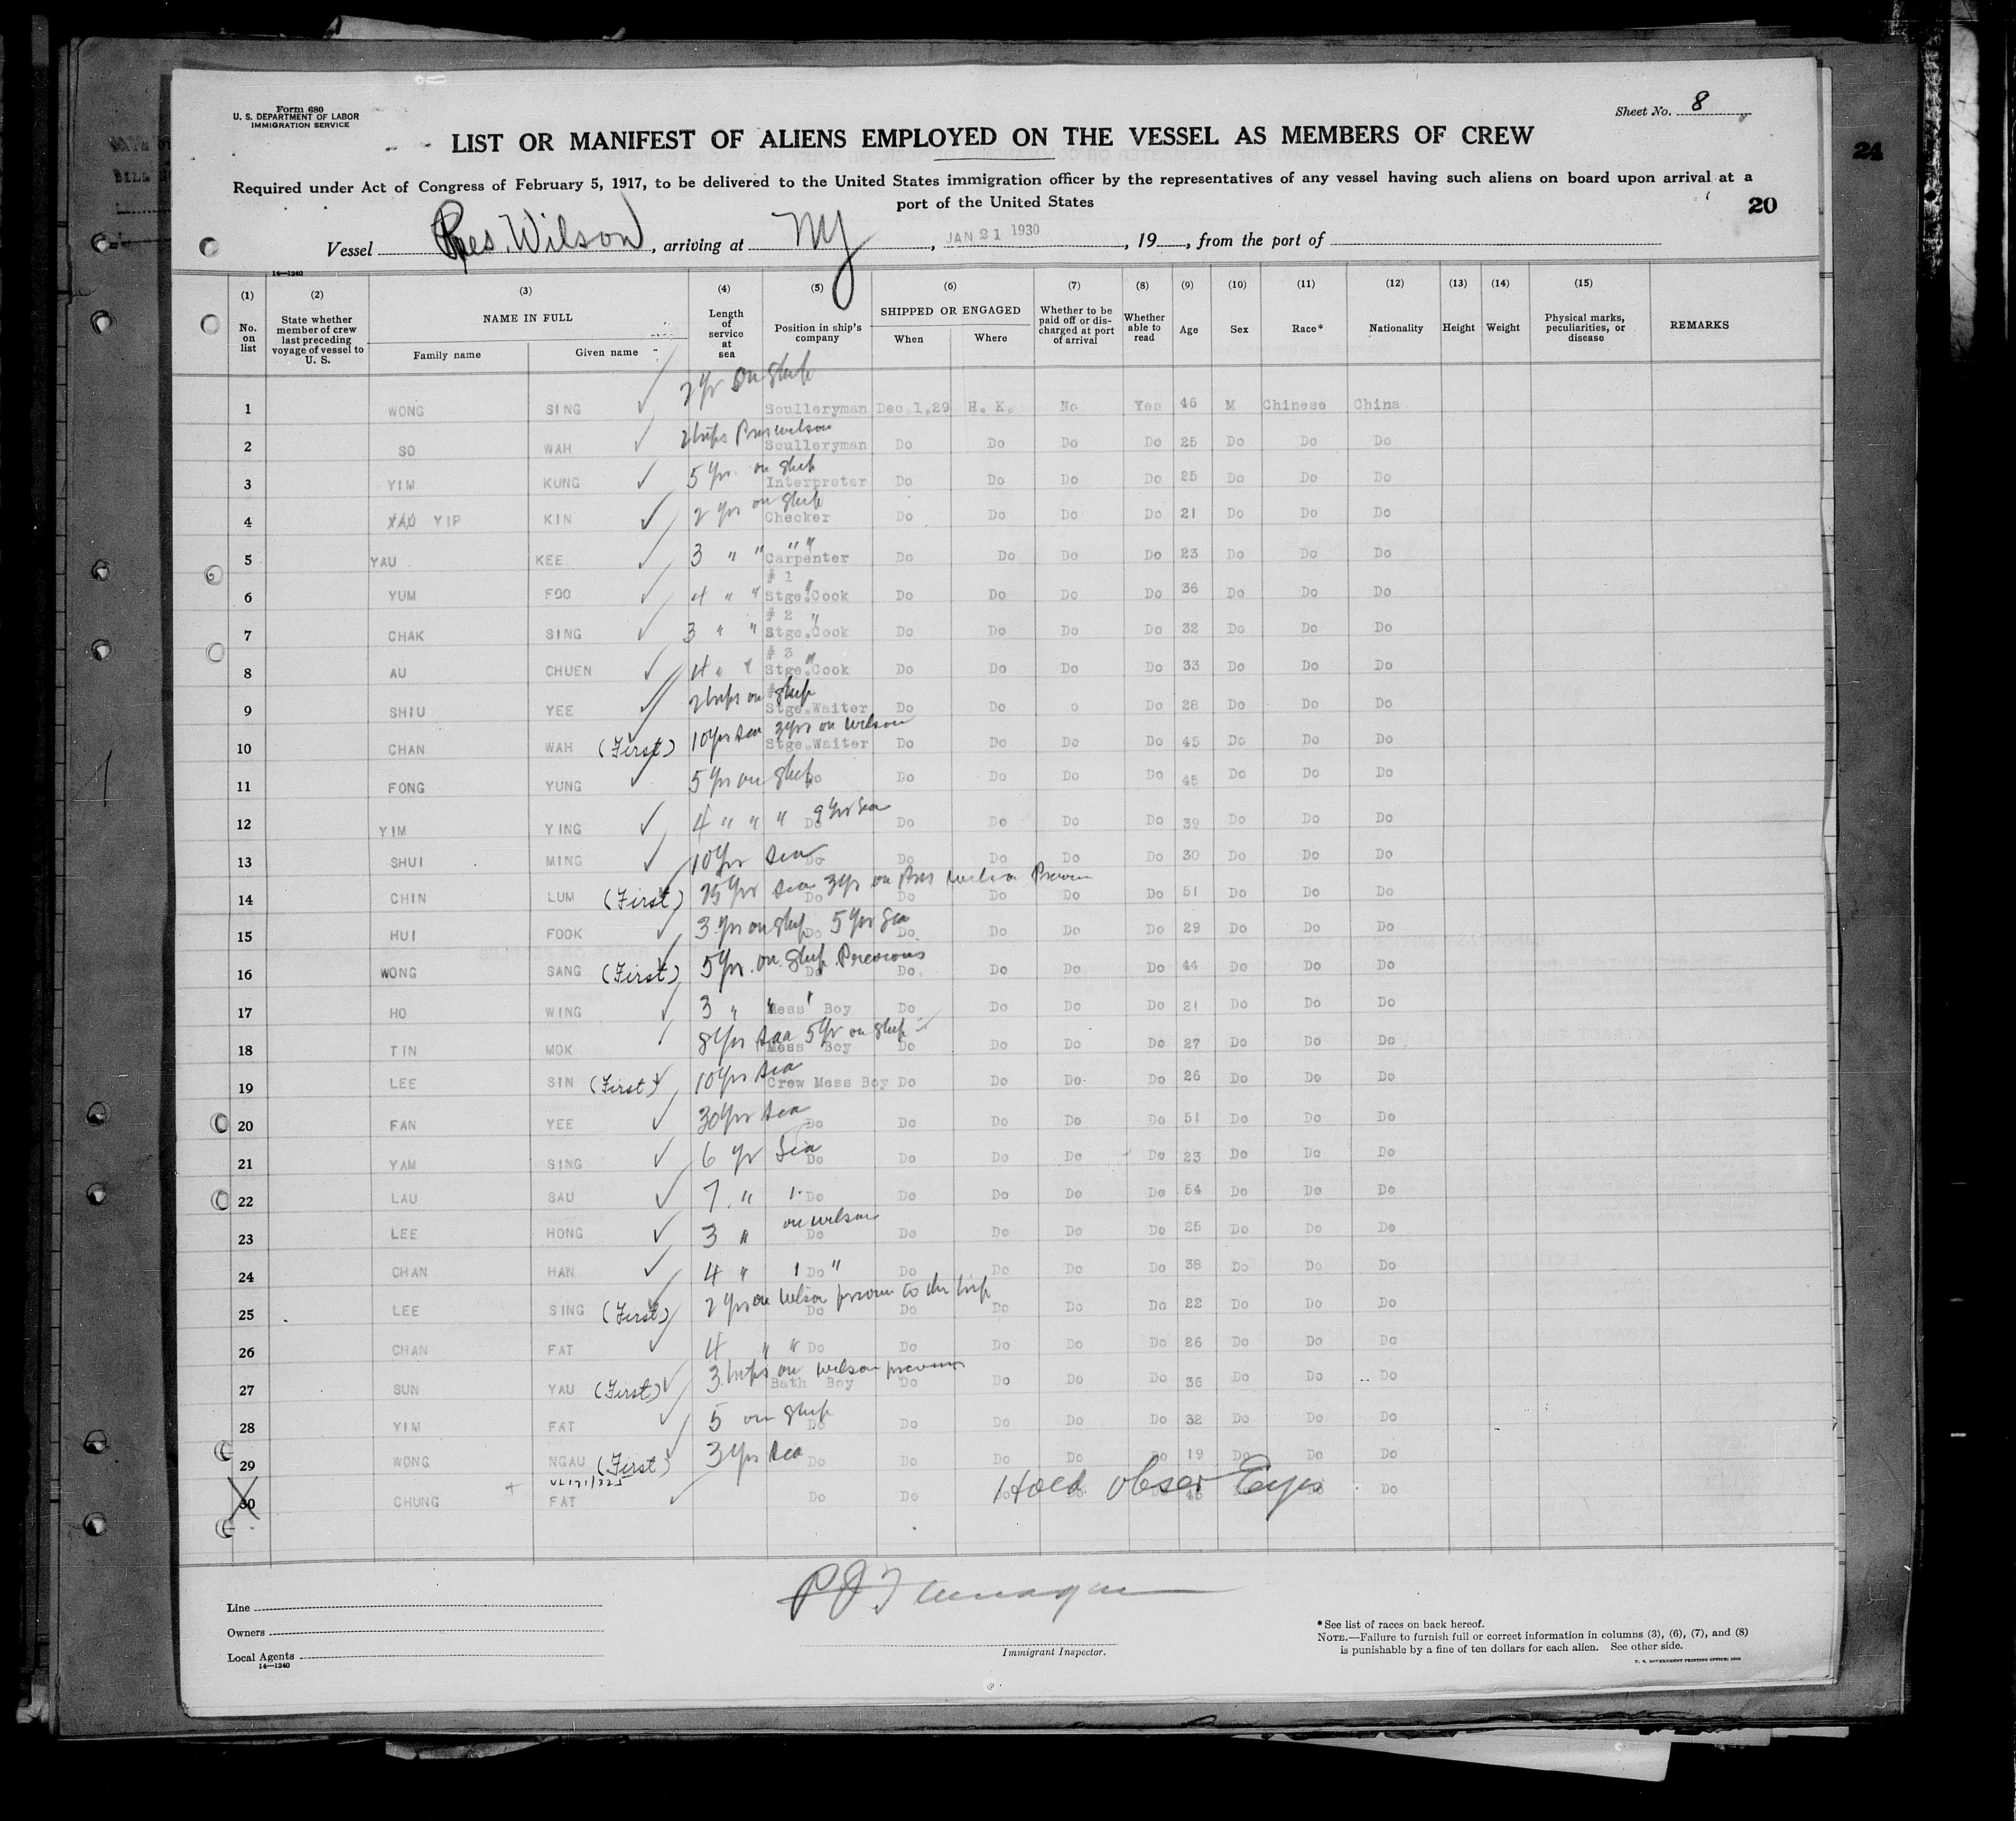 Form 680
U. S. DEPARTMENT OF LABOR
IMMIGRATION SERVICE
Sheet No. 8
LIST OR MANIFEST OF ALIENS EMPLOYED ON THE VESSEL AS MEMBERS OF CREW
24
Required under Act of Congress of February 5, 1917, to be delivered to the United States immigration officer by the representatives of any vessel having such aliens on board upon arrival at a
port of the United States
20
Vessel Pres. Wilson, arriving at NY, JAN 21 1930, 19, from the port of
14—1240
(1) (2) (3) (4) (5) (6) (7) (8) (9) (10) (11) (12) (13) (14) (15)
No. on list State whether member of crew last preceding voyage of vessel to U. S. NAME IN FULL Family name Given name Length of service at sea Position in ship's company SHIPPED OR ENGAGED When Where Whether to be paid off or discharged at port of arrival Whether able to read Age Sex Race* Nationality Height Weight Physical marks, peculiarities, or disease REMARKS
1 WONG SING 2 yr on ship Sculleryman Dec.1,29 H. K. No Yes 46 M Chinese China
2 SO WAH 2 trips Pres Wilson Sculleryman Do Do Do Do 25 Do Do Do
3 YIM KUNG 5 yr. on ship Interpreter Do Do Do Do 25 Do Do Do
4 YAU YIP KIN 2 yrs on ship Checker Do Do Do Do 21 Do Do Do
5 YAU KEE 3 " " " " Carpenter Do Do Do Do 23 Do Do Do
6 YUM FOO 4 " " " # 1 Stge.Cook Do Do Do Do 36 Do Do Do
7 CHAK SING 3 " " " # 2 Stge.Cook Do Do Do Do 32 Do Do Do
8 AU CHUEN 4 " " " # 3 Stge.Cook Do Do Do Do 33 Do Do Do
9 SHIU YEE 2 trips on ship Stge.Waiter Do Do o Do 28 Do Do Do
10 CHAN WAH (First) 10 yrs sea 3 yrs on Wilson Stge.Waiter Do Do Do Do 45 Do Do Do
11 FONG YUNG 5 yrs on ship Do Do Do Do Do 45 Do Do Do
12 YIM YING 4 " " " 9 yrs sea Do Do Do Do Do 39 Do Do Do
13 SHUI MING 10 yrs sea Do Do Do Do Do 30 Do Do Do
14 CHIN LUM (First) yrs sea 3 yr on Pres Wilson Do Do Do Do Do 51 Do Do Do
15 HUI FOOK 3 yrs on ship 5 yrs sea Do Do Do Do Do 29 Do Do Do
16 WONG SANG (First) 5 yrs. on ship Previous Do Do. Do Do Do 44 Do Do Do
17 HO WING 3 " " " Mess Boy Do Do Do Do 21 Do Do Do
18 TIN MOK 8 yrs sea 5 yr on ship Mess Boy Do Do Do Do 27 Do Do Do
19 LEE SIN (First) 10 yrs sea Crew Mess Boy Do Do Do Do 26 Do Do Do
20 FAN YEE 30 yrs sea Do Do Do Do Do 51 Do Do Do
21 YAM SING 6 yr sea Do Do Do Do Do 23 Do Do Do
22 LAU SAU 7 " " Do Do Do Do Do 54 Do Do Do
23 LEE HONG 3 " on Wilson Do Do Do Do Do 25 Do Do Do
24 CHAN HAN 4 " " " Do Do Do Do Do 38 Do Do Do
25 LEE SING (First) 2 yrs on Wilson to this trip Do Do Do Do Do 22 Do Do Do
26 CHAN FAT 4 " " Do Do Do Do Do 26 Do Do Do
27 SUN YAU (First) 3 trips on Wilson Bath Boy Do Do Do Do 36 Do Do Do
28 YIM FAT 5 on ship Do Do Do Do Do 32 Do Do Do
29 WONG NGAU (First) 3 yrs sea Do Do Do Do Do 19 Do Do Do
30 CHUNG FAT Do Do Hold obser Eyes 45 Do Do
Line
Owners
Local Agents
14—1240
Immigrant Inspector.
*See list of races on back hereof.
NOTE.—Failure to furnish full or correct information in columns (3), (6), (7), and (8)
is punishable by a fine of ten dollars for each alien. See other side.
U. S. GOVERNMENT PRINTING OFFICE: 1929